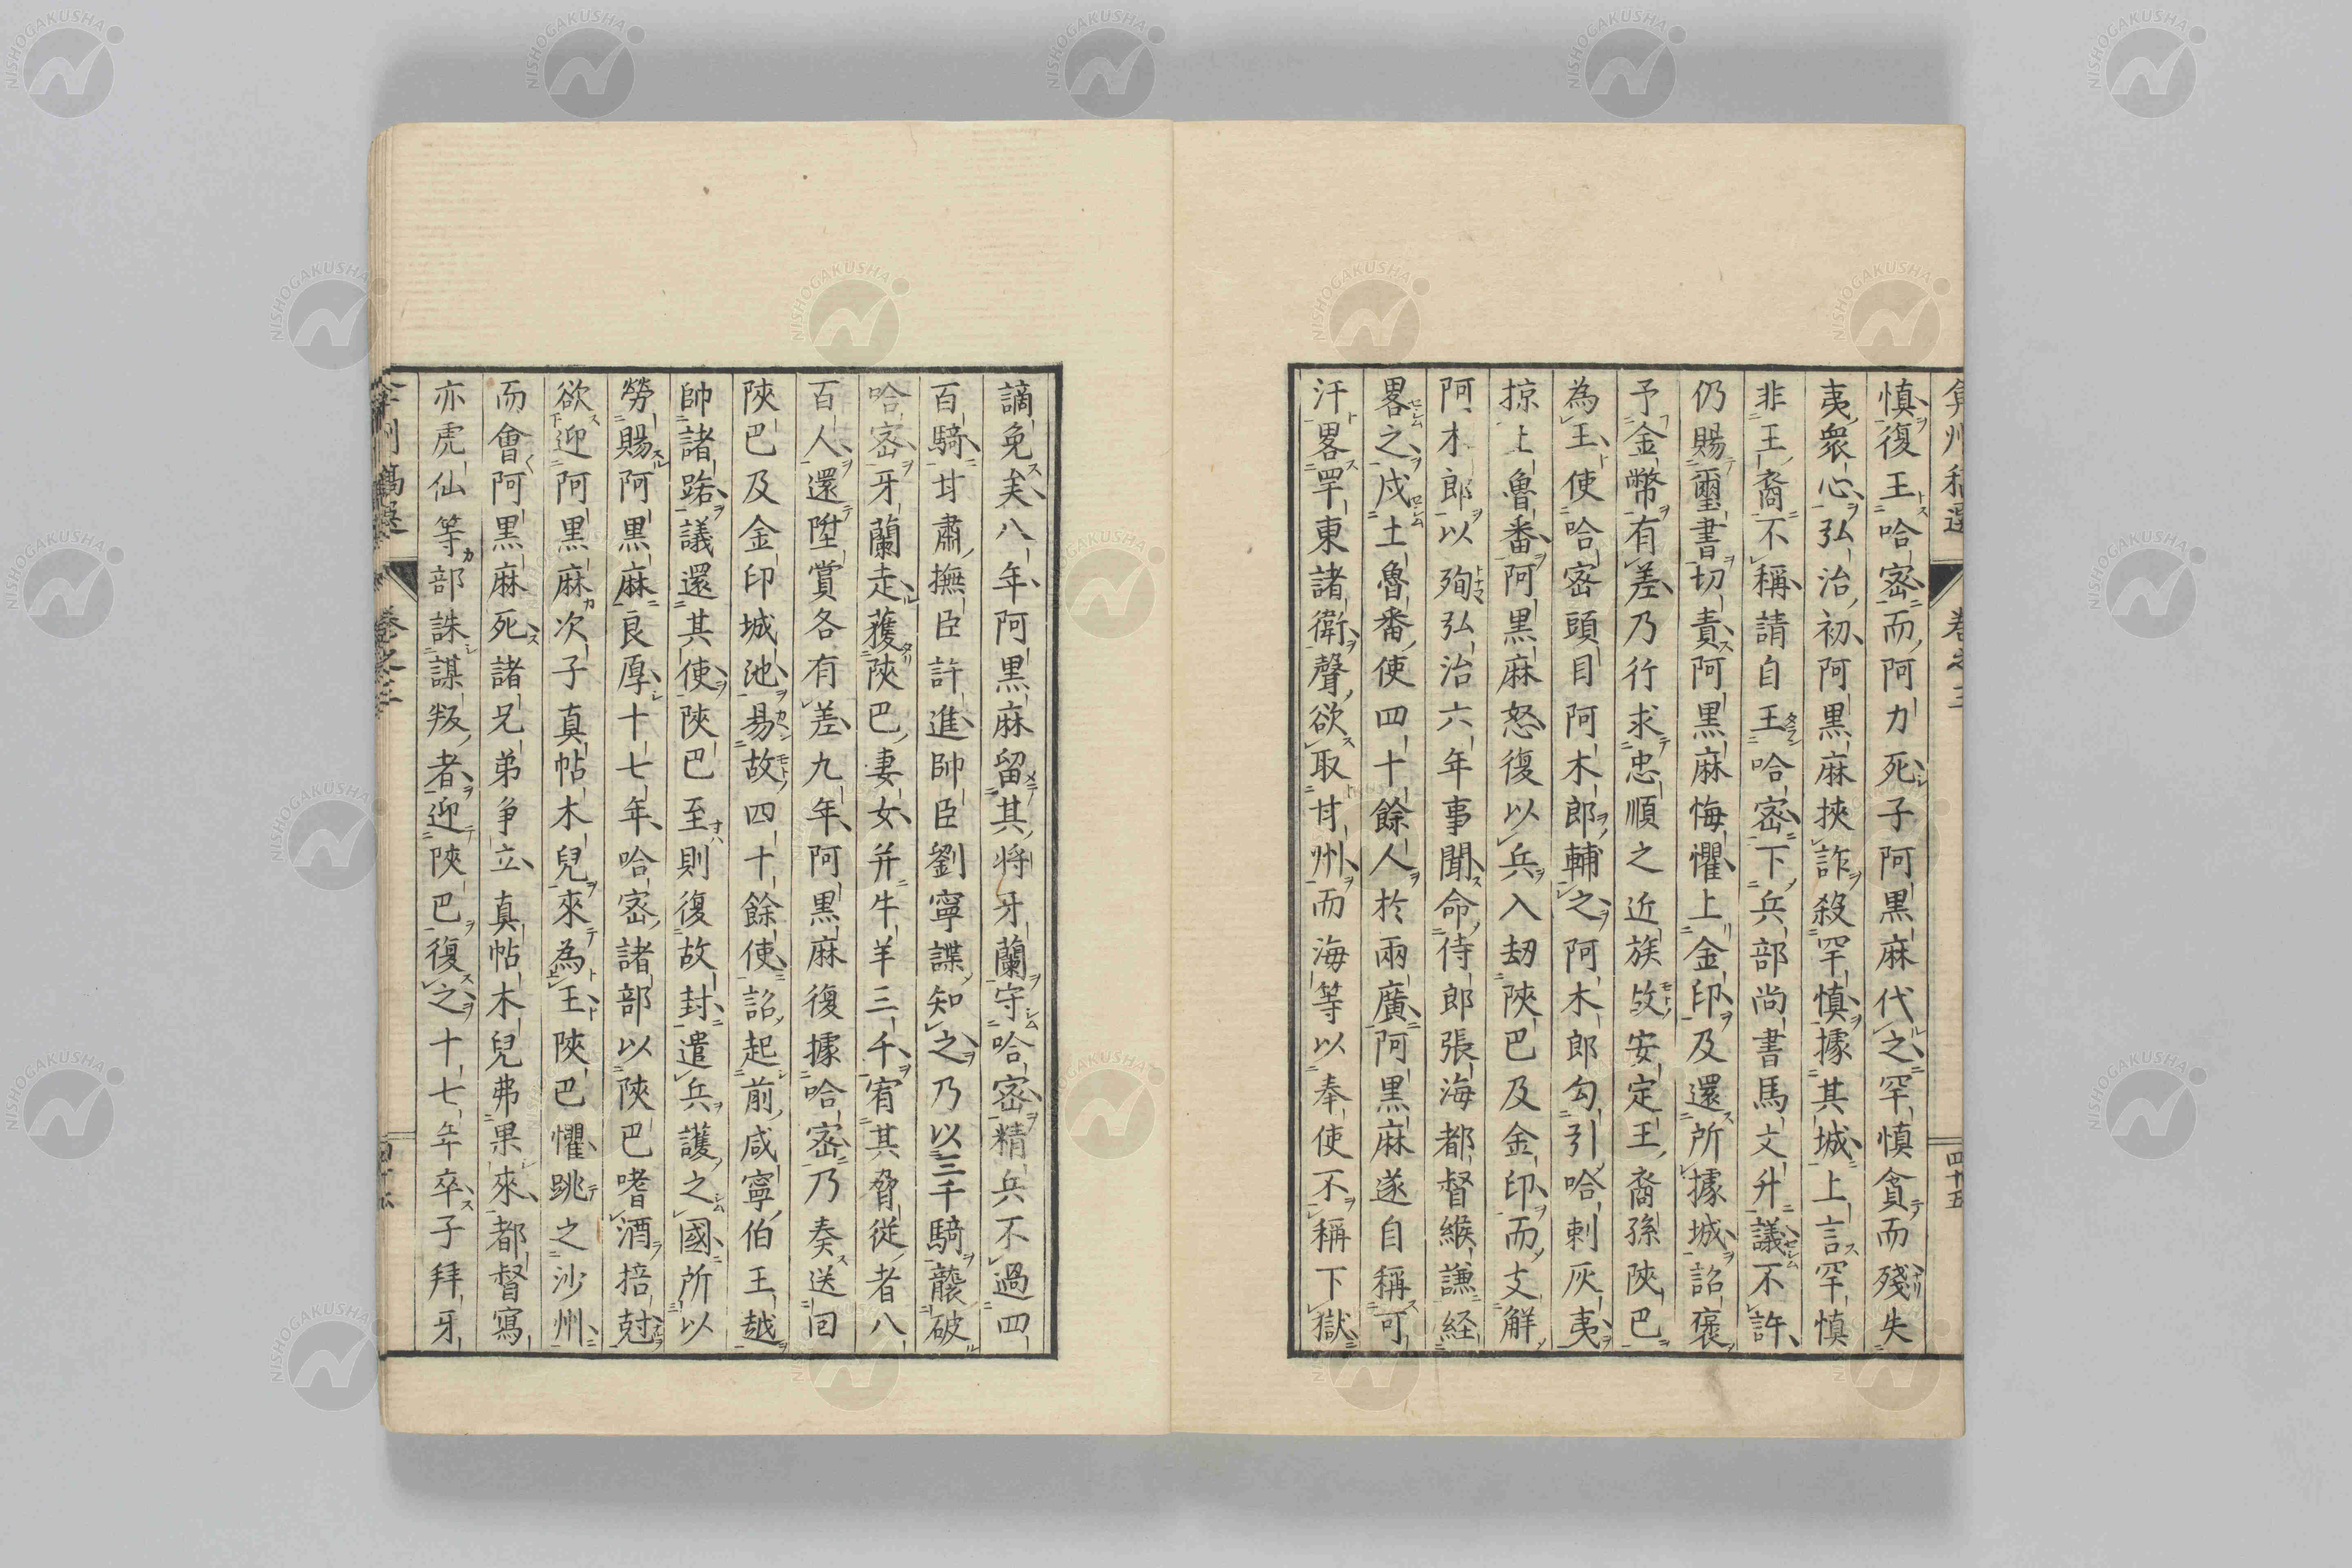 弇州稿選 卷之三 四十五
慎復王哈密而阿力死子阿黒麻代之罕慎貪而殘失
夷衆心弘治初阿黒麻挾詐殺罕慎據其城上言罕慎
非王裔不稱請自王哈密下兵部尚書馬文升議不許
仍賜璽書切責阿黒麻悔懼上金印及還所據城詔褒
予金幣有差乃行求忠順之近族故安定王裔孫陝巴
為王使哈密頭目阿木郎輔之阿木郎勾引哈剌灰夷
掠土魯番阿黒麻怒復以兵入刼陝巴及金印而支解
阿木郎以殉弘治六年事聞命侍郎張海都督緱謙経
畧之戍土魯番使四十餘人於兩廣阿黒麻遂自稱可
汗畧罕東諸衛聲欲取甘州而海等以奉使不稱下獄
謫免矣八年阿黒麻留其将牙蘭守哈密精兵不過四
百騎甘肅撫臣許進帥臣劉寧諜知之乃以三千騎襲破
哈密牙蘭走獲陝巴妻女并牛羊三千宥其脅從者八
百人還陞賞各有差九年阿黒麻復據哈密乃奏送回
陝巴及金印城池易故四十餘使詔起前咸寧伯王越
帥諸路議還其使陝巴至則復故封遣兵護之國所以
勞賜阿黒麻良厚十七年哈密諸部以陝巴嗜酒掊尅
欲迎阿黒麻次子真帖木兒來為王陝巴懼跳之沙州
而會阿黒麻死諸兄弟争立真帖木兒弗果來都督寫
亦虎仙等部誅謀叛者迎陝巴復之十七年卒子拜牙
弇州稿選 卷之三